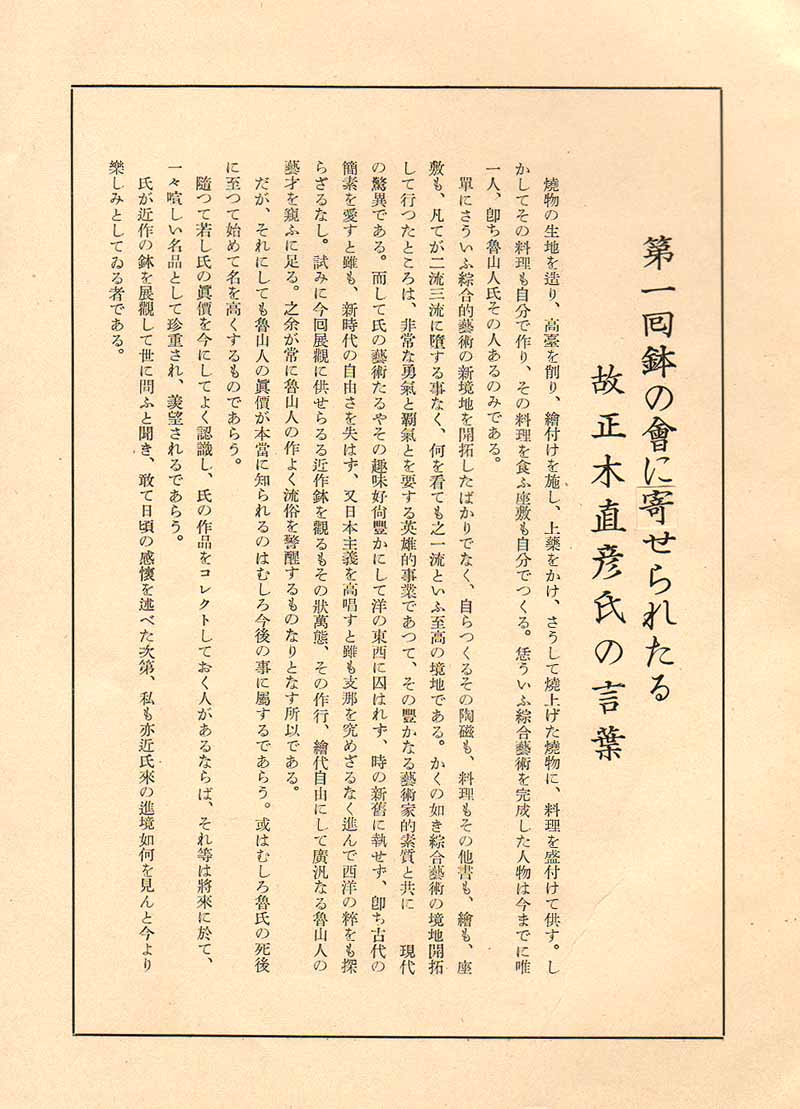 第一囘鉢の會に寄せられたる
故正木直彦氏の言葉
燒物の生地を造り、高臺を削り、繪付けを施し、上藥をかけ、さうして燒上げた燒物に、料理を盛付けて供す。し
かしてその料理も自分で作り、その料理を食ふ座敷も自分でつくる。恁ういふ綜合藝術を完成した人物は今までに唯
一人、卽ち魯山人氏その人あるのみである。
單にさういふ綜合的藝術の新境地を開拓したばかりでなく、自らつくるその陶磁も、料理もその他書も、繪も、座
敷も、凡てが二流三流に墮する事なく、何を看ても之一流といふ至高の境地である。かくの如き綜合藝術の境地開拓
して行つたところは、非常な勇氣と覇氣とを要する英雄的事業であつて、その豐かなる藝術家的素質と共に　現代
の驚異である。而して氏の藝術たるやその趣味好尙豐かにして洋の東西に囚はれず、時の新舊に執せず、卽ち古代の
簡素を愛すと雖も、新時代の自由さを失はず、又日本主義を高唱すと雖も支那を究めざるなく進んで西洋の粹をも探
らざるなし。試みに今囘展觀に供せらるる近作鉢を觀るもその狀萬態、その作行、繪代自由にして廣汎なる魯山人の
藝才を窺ふに足る。之余が常に魯山人の作よく流俗を警醒するものなりとなす所以である。
だが、それにしても魯山人の眞價が本當に知られるのはむしろ今後の事に屬するであらう。或はむしろ魯氏の死後
に至つて始めて名を高くするものであらう。
隨つて若し氏の眞價を今にしてよく認識し、氏の作品をコレクトしておく人があるならば、それ等は將來に於て、
一々喧しい名品として珍重され、羨望されるであらう。
氏が近作の鉢を展觀して世に問ふと聞き、敢て日頃の感懷を述べた次第、私も亦近氏來の進境如何を見んと今より
樂しみとしてゐる者である。